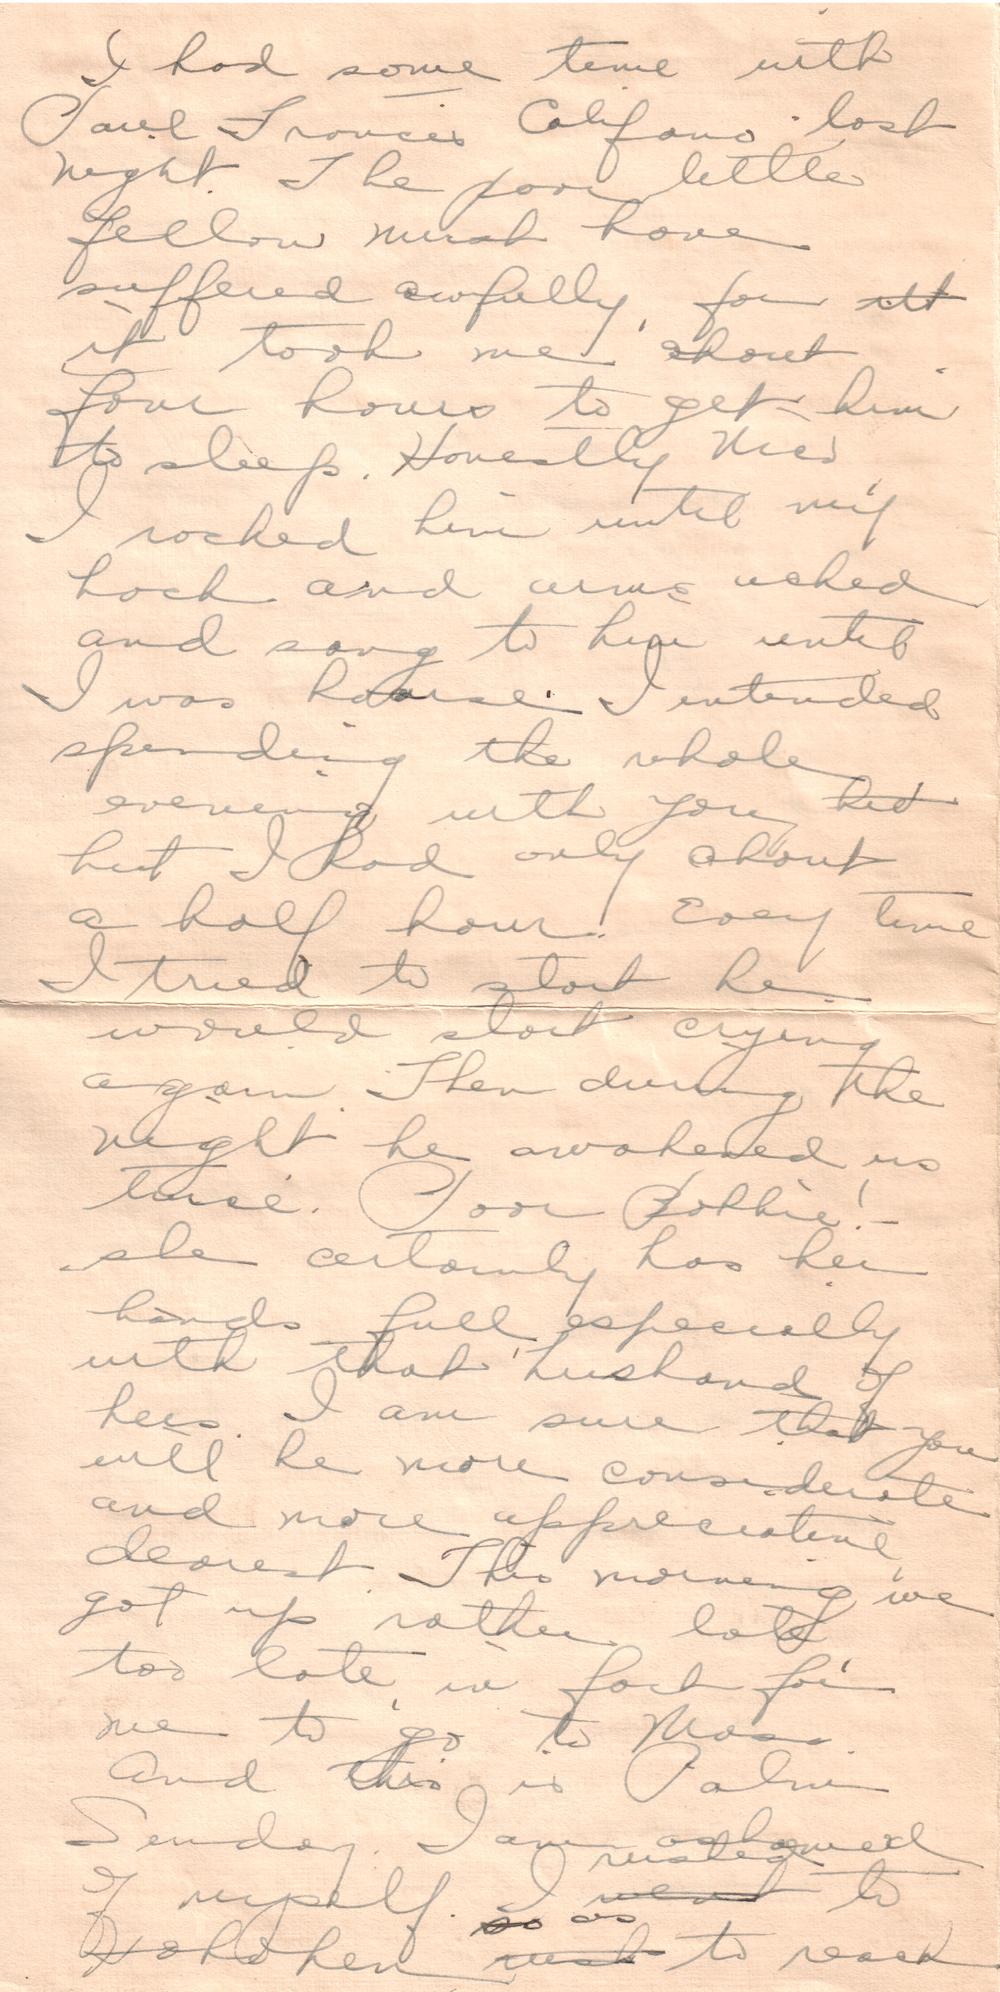 I had some time with
Paul Francis Califano last
night. The poor little
fellow must have
suffered awfully, for it
it took me about
four hours to get him
to sleep. Honestly
I rocked him until my
back and arms ached
and sang to him until
I was hoarse. I intended
spending the whole
evening with you, but
but I had only about
a half hour. Every time
I tried to start he
would start crying
again. Then during the
night he awakened us
twice. Poor Bobbie! -
she certainly has her
hands full especially
with that husband of
hers. I am sure that you
will be more considerate
and more appreciative
dearest. This morning we
got up rather late
too late in fact for
me to go to Mass.
And this is Palm
Sunday. I am ashamed
of myself. I went rushed to
Hoboken rush so as to reach